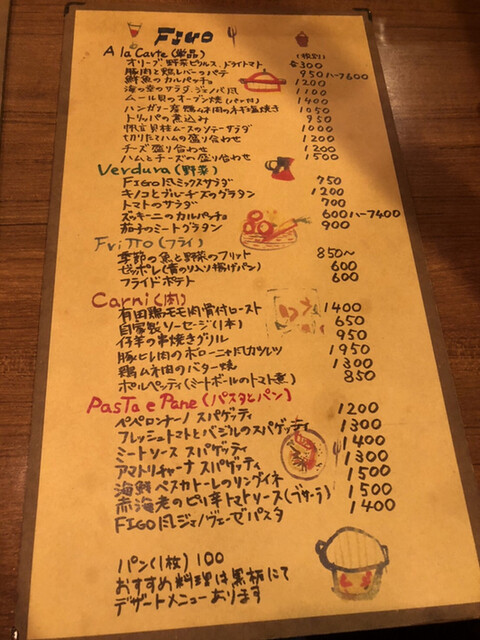 FIGO
A la Carte (単品) (税別)
オリーブ、野菜ピクルス、ドライトマト 各300
豚肉と鶏レバーのパテ 950 ハーフ600
鮮魚のカルパッチョ 1200
海の幸のサラダ、ジェノバ風 1100
ムール貝のオーブン焼(パン付) 1400
ハンガリー産鴨ムネ肉のネギ塩焼き 1050
トリッパの煮込み 950
帆立貝柱ムースのソテーサラダ 1000
切りたてハムの盛り合わせ 1200
チーズ盛り合わせ 1200
ハムとチーズの盛り合わせ 1500
Verdura (野菜)
FIGO風ミックスサラダ 750
キノコとブルーチーズのグラタン 1200
トマトのサラダ 700
ズッキーニのカルパッチョ 600 ハーフ400
茄子のミートグラタン 900
FriTTo (フライ)
季節の魚と野菜のフリット 850〜
ゼッポレ(青のり入り揚げパン) 600
フライドポテト 600
Carni (肉)
有田鶏モモ肉骨付ロースト 1400
自家製ソーセージ(1本) 650
仔羊の串焼きグリル 950
豚ヒレ肉のボローニャ風カツレツ 1950
鶏ムネ肉のバター焼 1300
ポルペッティ(ミートボールのトマト煮) 850
PasTa e Pane (パスタとパン)
ペペロンチーノ スパゲッティ 1200
フレッシュトマトとバジルのスパゲッティ 1300
ミートソース スパゲッティ 1400
アマトリチャーナ スパゲッティ 1300
海鮮ペスカトーレのリングイネ 1500
赤海老のピリ辛トマトソース(ブサーラ) 1500
FIGO風ジェノヴェーゼパスタ 1400
パン(1枚)100
おすすめ料理は黒板にて
デザートメニューあります